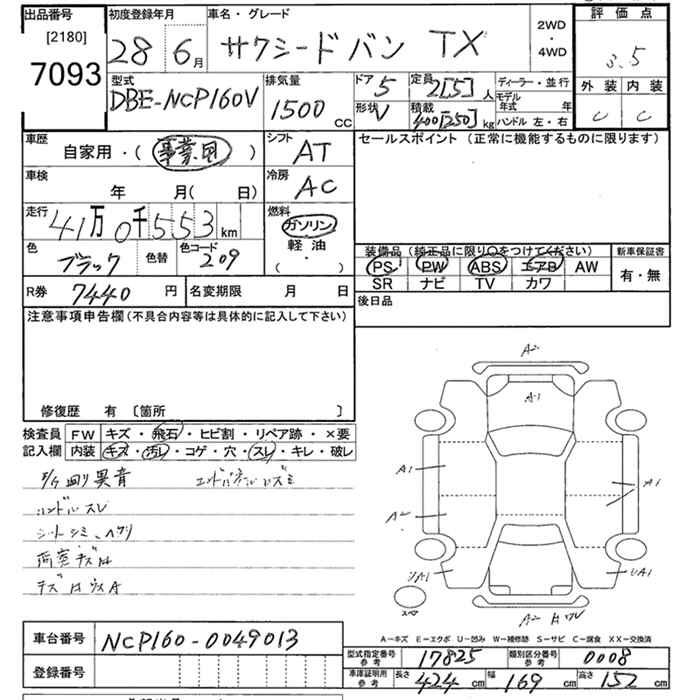 出品番号
[2180]
7093
初度登録年月
28 6月
車名・グレード
サクシードバン TX
2WD
・
4WD
評価点
3.5
外装 内装
C C
型式
DBE-NCP160V
排気量
1500 CC
ドア 5
定員 2[5]人
ディーラー・並行
形状 V
積載 400[250]kg
モデル年式 年
ハンドル 左・右
車歴
自家用・(事業用)
シフト
AT
セールスポイント (正常に機能するものに限ります)
車検
年 月(日)
冷房
AC
走行
41万0千553km
燃料
ガソリン・軽油・( )
色
ブラック
色替
色コード
209
装備品 (純正品に限り〇をつけてください)
新車保証書
PS PW ABS エアB AW
有・無
SR ナビ TV カワ
R券 7440円
名変期限 月 日
後日品
注意事項申告欄 (不具合内容等は具体的に記入して下さい)
修復歴 有 〔箇所 〕
検査員記入欄
FW キズ・飛石・ヒビ割・リペア跡・×要
内装 キズ・汚レ・コゲ・穴・スレ・キレ・破レ
異音
ハンドルスレ
シートシミ、ヘタリ
荷室キズ
A2
A1
A1
A2
A1
A2
A-キズ E-エクボ U-凹み W-補修跡 S-サビ C-腐食 XX-交換済
車台番号
NCP160-0049013
登録番号
型式指定番号 参考
17825
類別区分番号 参考
0008
車庫証明用 参考
長さ 424cm 幅 169cm 高さ 152cm